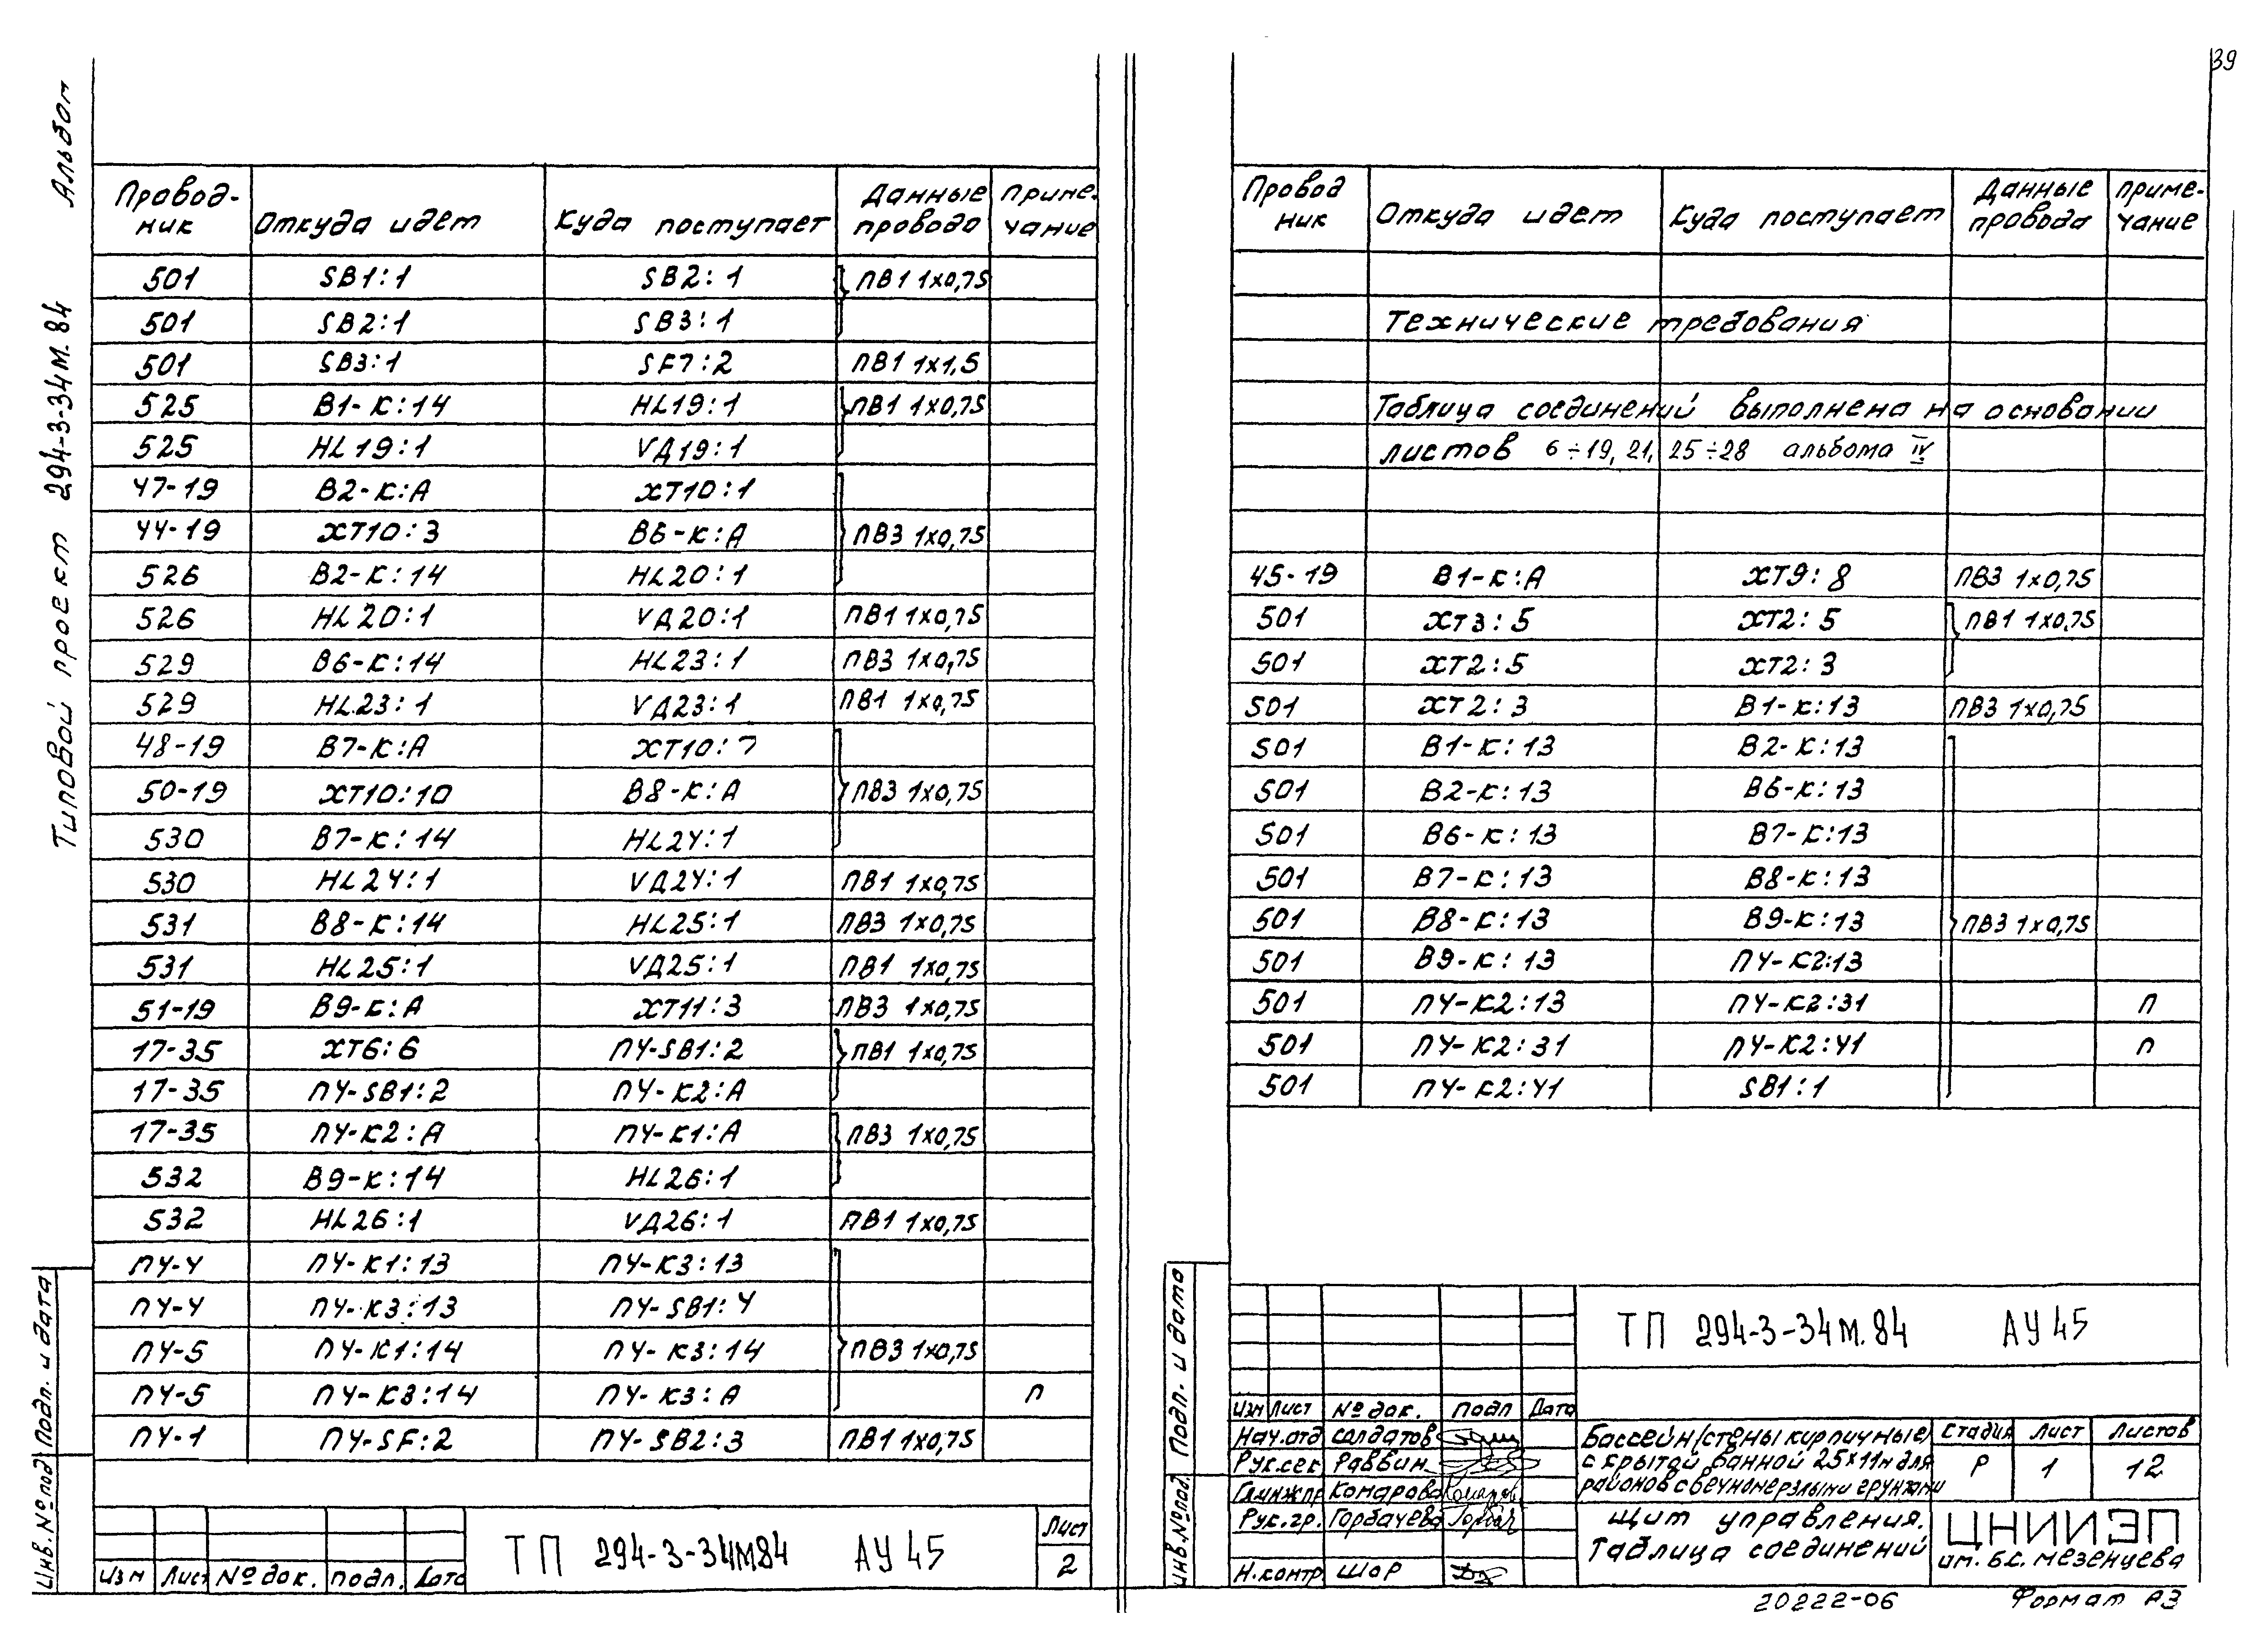 39
Альбом
Типовой проект 294-3-34м.84
Провод- Откуда идет Куда поступает Данные Приме-
ник провода чание
501 SB1:1 SB2:1 ПВ1 1х0,75
501 SB2:1 SB3:1
501 SB3:1 SF7:2 ПВ1 1х1,5
525 В1-К:14 HL19:1 ПВ1 1х0,75
525 HL19:1 VД19:1
47-19 В2-К:А ХТ10:1
44-19 ХТ10:3 В6-К:А ПВ3 1х0,75
526 В2-К:14 HL20:1
526 HL20:1 VД20:1 ПВ1 1х0,75
529 В6-К:14 HL23:1 ПВ3 1х0,75
529 HL23:1 VД23:1 ПВ1 1х0,75
48-19 В7-К:А ХТ10:7
50-19 ХТ10:10 В8-К:А ПВ3 1х0,75
530 В7-К:14 HL24:1
530 HL24:1 VД24:1 ПВ1 1х0,75
531 В8-К:14 HL25:1 ПВ3 1х0,75
531 HL25:1 VД25:1 ПВ1 1х0,75
51-19 В9-К:А ХТ11:3 ПВ3 1х0,75
17-35 ХТ6:6 ПУ-SB1:2 ПВ1 1х0,75
17-35 ПУ-SB1:2 ПУ-К2:А
17-35 ПУ-К2:А ПУ-К1:А ПВ3 1х0,75
532 В9-К:14 HL26:1
532 HL26:1 VД26:1 ПВ1 1х0,75
ПУ-4 ПУ-К1:13 ПУ-К3:13
ПУ-4 ПУ-К3:13 ПУ-SB1:4
ПУ-5 ПУ-К1:14 ПУ-К3:14 ПВ3 1х0,75
ПУ-5 ПУ-К3:14 ПУ-К3:А П
ПУ-1 ПУ-SF:2 ПУ-SB2:3 ПВ1 1х0,75
Инв. № под Подп. и дата
Изм Лист № док. подп. Дата
ТП 294-3-34м84 АУ45
Лист
2
Провод Откуда идет Куда поступает Данные Приме-
ник провода чание
Технические требования
Таблица соединений выполнена на основании
листов 6÷19, 21, 25÷28 альбома IV.
45-19 В1-К:А ХТ9:8 ПВ3 1х0,75
501 ХТ3:5 ХТ2:5 ПВ1 1х0,75
501 ХТ2:5 ХТ2:3
501 ХТ2:3 В1-К:13 ПВ3 1х0,75
501 В1-К:13 В2-К:13
501 В2-К:13 В6-К:13
501 В6-К:13 В7-К:13
501 В7-К:13 В8-К:13
501 В8-К:13 В9-К:13 ПВ3 1х0,75
501 В9-К:13 ПУ-К2:13
501 ПУ-К2:13 ПУ-К2:31 П
501 ПУ-К2:31 ПУ-К2:41 П
501 ПУ-К2:41 SB1:1
Инв. № под. Подп. и дата
ТП 294-3-34м.84 АУ45
Изм Лист № док. подп Дата
Нач.отд Солдатов
Рук.сек. Раввин
Гл.инж.пр Комарова
Рук.гр. Горбачева
Н.контр Шор
Бассейн (стены кирпичные)
с крытой ванной 25х11м для
районов с вечномерзлыми грунтами
Стадия Лист Листов
Р 1 12
Щит управления.
Таблица соединений
ЦНИИЭП
им. Б.С. Мезенцева
20222-06 Формат А3